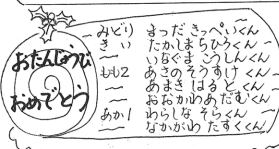 おたんじょうび
おめでとう
みどり まつだ きっぺいくん
きい たかしまちひろくん
〃 いなぐま こうしんくん
もも2 あさの そうすけくん
〃 あまき はるとくん
〃 おおかわあだむくん
あか1 わらしな そらくん
〃 なかがわ たすくくん